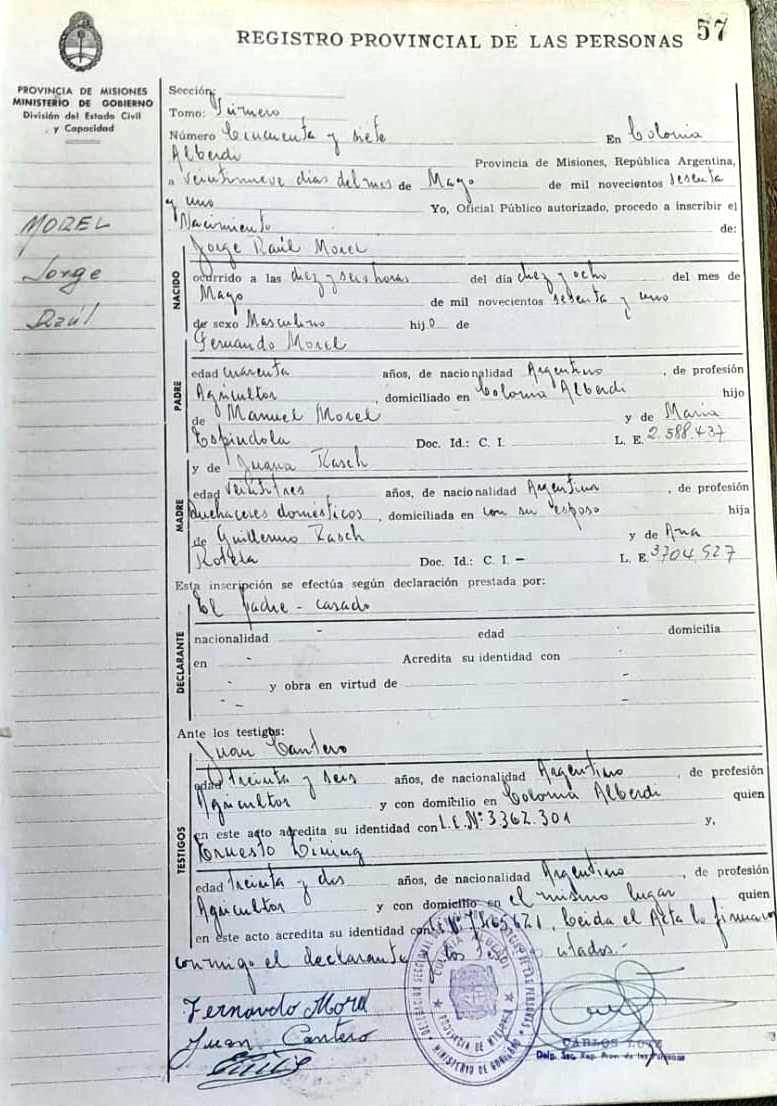 57
REGISTRO PROVINCIAL DE LAS PERSONAS
PROVINCIA DE MISIONES
MINISTERIO DE GOBIERNO
División del Estado Civil
y Capacidad
MOREL
Jorge
Raúl
Sección:
Tomo: Primero
Número Cincuenta y siete En Colonia
Alberdi Provincia de Misiones, República Argentina,
a veintinueve dias del mes de Mayo de mil novecientos sesenta
y uno Yo, Oficial Público autorizado, procedo a inscribir el
Nacimiento de:
NACIDO
Jorge Raúl Morel
ocurrido a las diez y seis horas del día diez y ocho del mes de
Mayo de mil novecientos sesenta y uno
de sexo Masculino hijo de
Fernando Morel
PADRE
edad cuarenta años, de nacionalidad Argentino, de profesión
Agricultor, domiciliado en Colonia Alberdi hijo
de Manuel Morel y de Maria
Espindola Doc. Id.: C. I. L. E. 2.588.437
y de Juana Rasch
MADRE
edad veintitres años, de nacionalidad Argentina, de profesión
quehaceres domésticos, domiciliada en con su esposo hija
de Guillermo Rasch y de Ana
Rotela Doc. Id.: C. I. - L. E. 3704.527
Esta inscripción se efectúa según declaración prestada por:
El padre - casado
DECLARANTE
nacionalidad - edad domicilia
en - Acredita su identidad con -
- y obra en virtud de -
Ante los testigos:
TESTIGOS
Juan Cantero
edad treinta y seis años, de nacionalidad Argentino, de profesión
Agricultor y con domicilio en Colonia Alberdi quien
en este acto acredita su identidad con L.E.Nº 3362.301 y,
Ernesto
edad treinta y dos años, de nacionalidad Argentino, de profesión
Agricultor y con domicilio en el mismo lugar quien
en este acto acredita su identidad con Leida el Acta la firman
conmigo el declarante y los citados.-
Fernando Morel
Juan Cantero
COLONIA ALBERDI
PROVINCIA DE MISIONES
MINISTERIO DE GOBIERNO
CARLOS
Delg. Sec. Reg. Prov. de las Personas